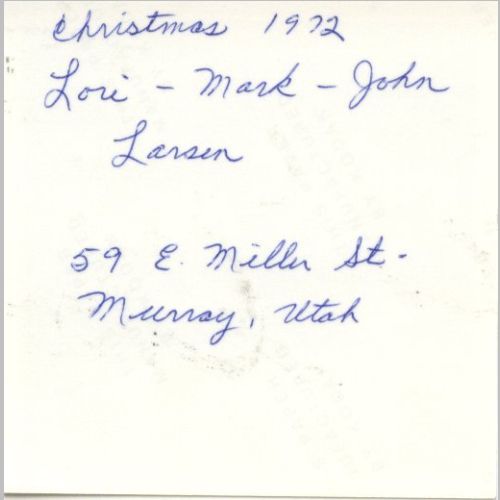 Christmas 1972
Lori - Mark - John
Larsen
59 E. Miller St.
Murray, Utah